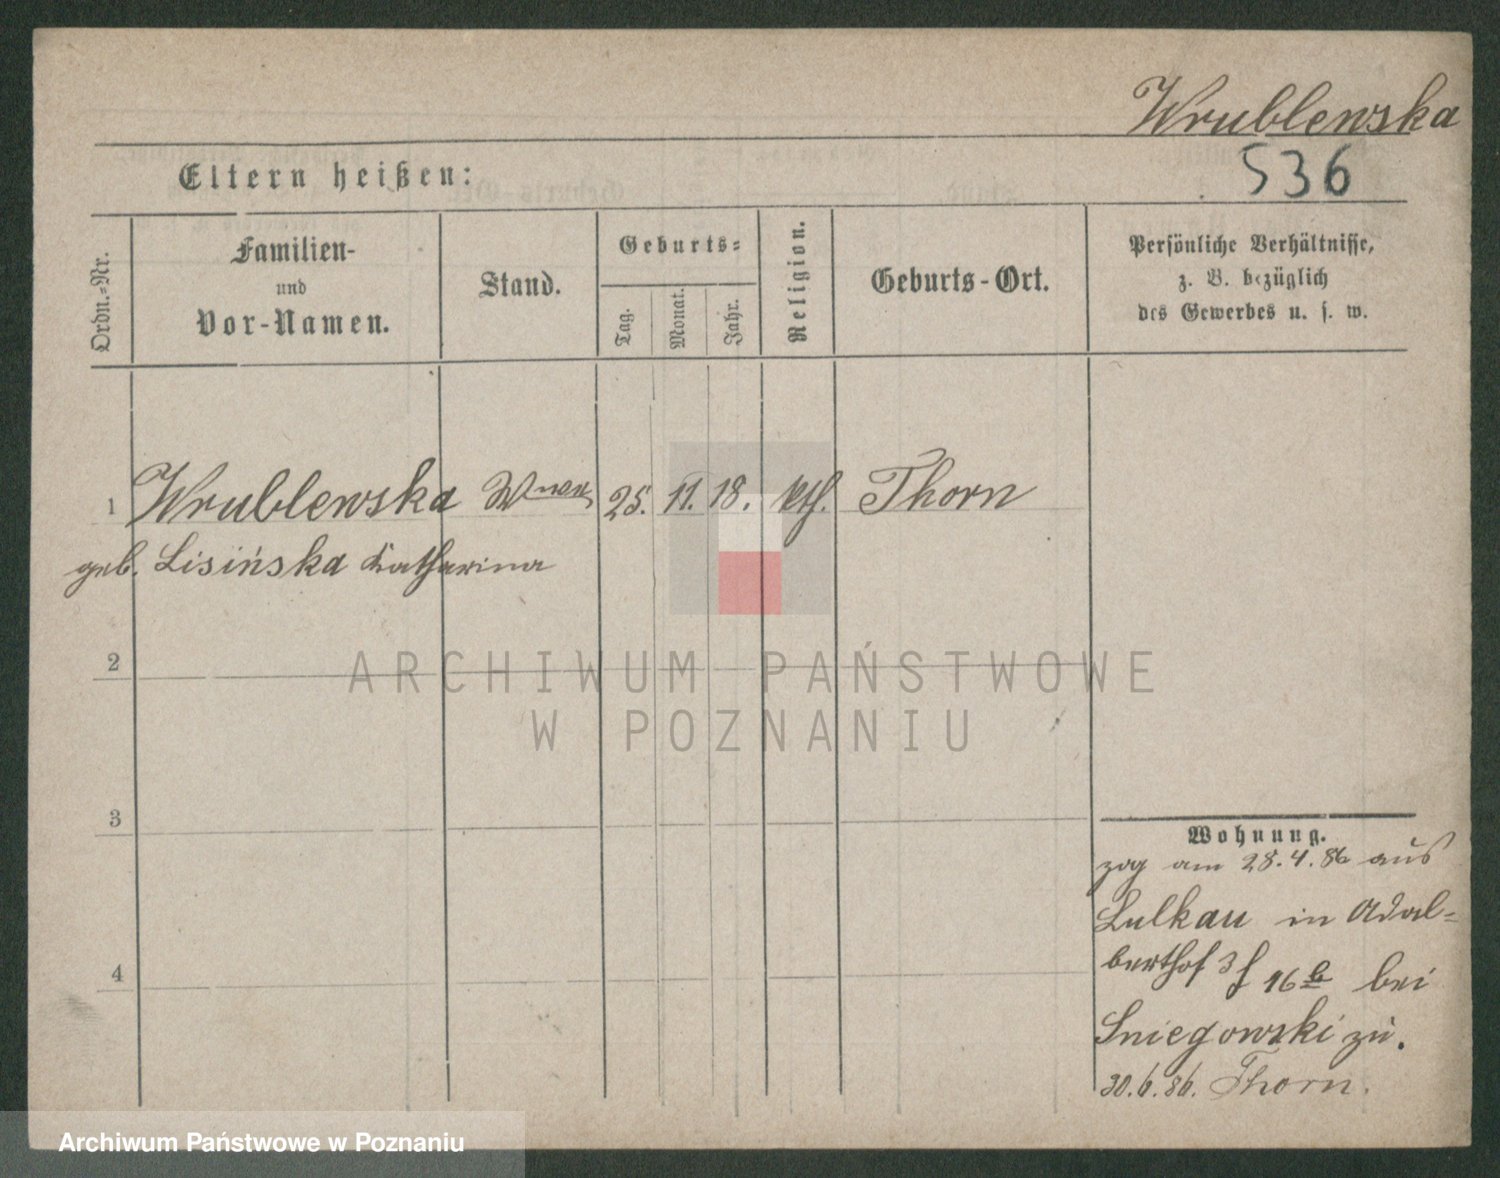 Wrublewska
Eltern heißen:
536
Ordn.-Nr.
Familien-
und
Vor-Namen.
Stand.
Geburts-
Tag.
Monat.
Jahr.
Religion.
Geburts-Ort.
Persönliche Verhältnisse,
z. B. bezüglich
des Gewerbes u. s. w.
1 Wrublewska Wwe 25. 11. 18. kth. Thorn
geb. Lisińska Katharina
2
ARCHIWUM PAŃSTWOWE
W POZNANIU
3
Wohnung.
zog am 28.4.86 aus
Lulkau in Adal-
berthof 3 f 16b bei
Sniegowski zu.
30.6.86. Thorn.
4
Archiwum Państwowe w Poznaniu